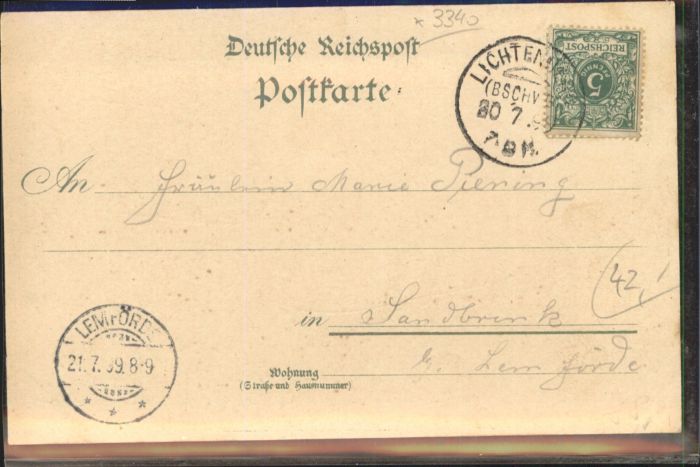 * 3340
Deutsche Reichspost
Postkarte
REICHSPOST
5
LICHTEN
(BSCHW
20 7 9
7-8 N.
An Fräulein Marie Piening
42,
in Sandbrink
b. Lemförde
LEMFÖRDE
21.7.99.8-9
* * *
Wohnung
(Straße und Hausnummer)